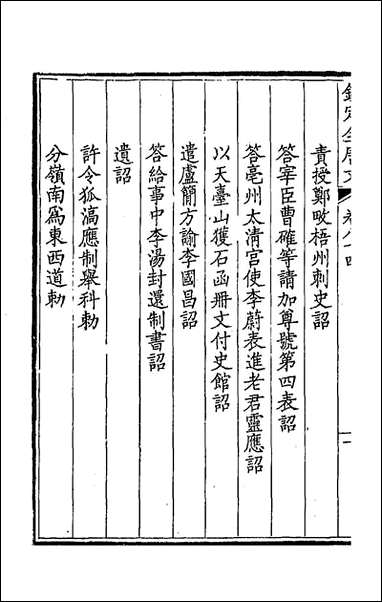 欽定全唐文 卷八十四
責授鄭畋梧州刺史詔
答宰臣曹確等請加尊號第四表詔
答亳州太清宮使李蔚表進老君靈應詔
以天臺山獲石函冊文付史館詔
遣盧簡方諭李國昌詔
答給事中李湯封還制書詔
遺詔
許令狐滈應制舉科敕
分嶺南為東西道敕